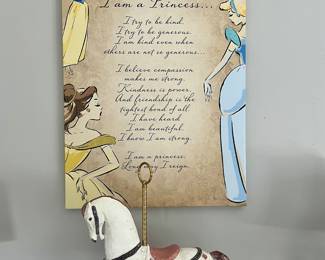 I am a Princess...
I try to be kind.
I try to be generous.
I am kind even when
others are not so generous...
I believe compassion
makes me strong.
Kindness is power,
And friendship is the
tightest bond of all.
I have heard
I am beautiful,
I know I am strong.
I am a princess.
Long may I reign.